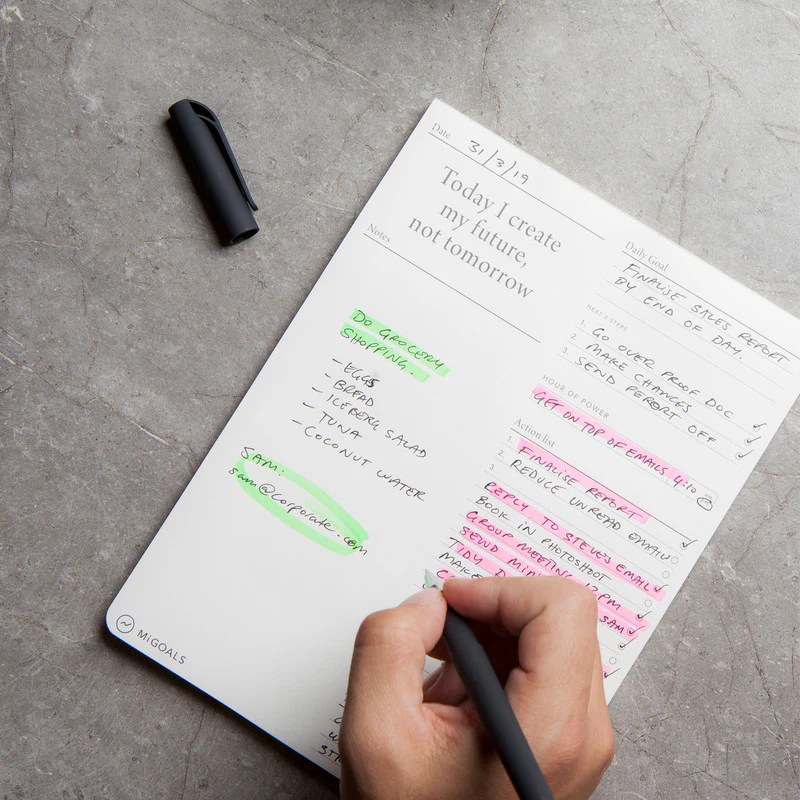 Date 31/3/19
Today I create
my future,
not tomorrow
Notes
DO GROCERY
SHOPPING.
- EGGS
- BREAD
- ICEBERG SALAD
- TUNA
- COCONUT WATER
SAM:
sam@corporate.com
MiGOALS
Daily Goal
FINALISE SALES REPORT
BY END OF DAY.
NEXT 3 STEPS
1. GO OVER PROOF DOC
2. MAKE CHANGES
3. SEND REPORT OFF
HOUR OF POWER
GET ON TOP OF EMAILS 4:10
Action list
1. FINALISE REPORT
2. REDUCE UNREAD EMAILS
3. REPLY TO STEVE'S EMAIL
BOOK IN PHOTOSHOOT
GROUP MEETING 12PM
SEND SAM
TIDY
MAKE